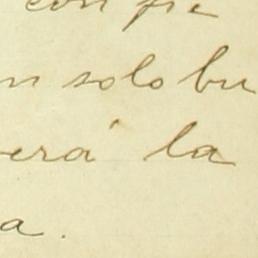 con pie
n solo bu
erá la
a.